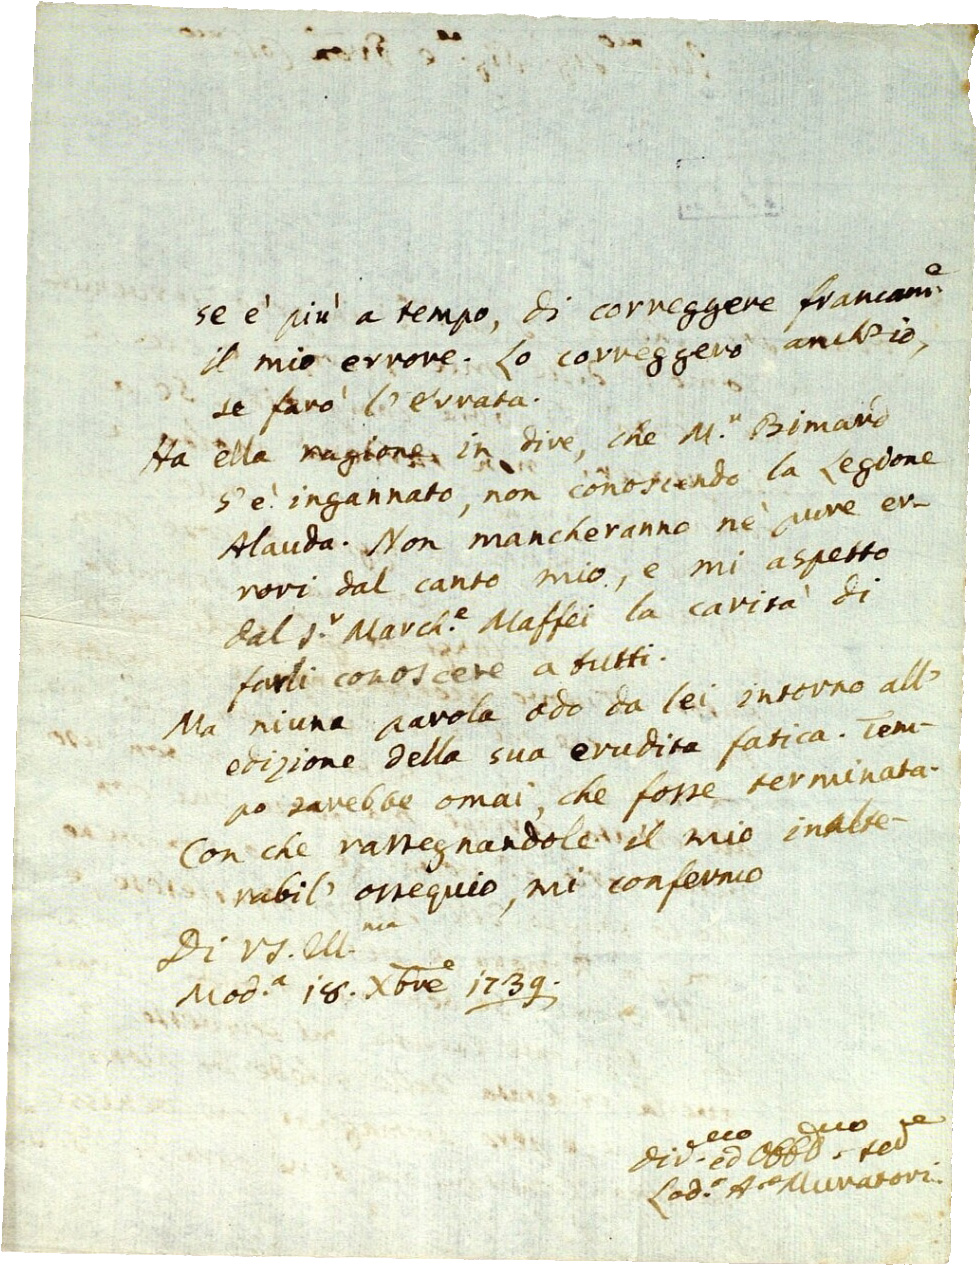 se è più a tempo, di correggere francam.e
il mio errore. Lo correggerò anch'io,
se farò l'Errata.
Ha ella ragione in dire, che M.r Bimard
s'è ingannato, non conoscendo la Legione
Alauda. Non mancheranno nè pure er-
rori dal canto mio, e mi aspetto
dal S.r March.e Maffei la carità di
farli conoscere a tutti.
Ma niuna parola odo da lei intorno all'
edizione della sua erudita fatica. Tem-
po sarebbe omai, che fosse terminata.
Con che rassegnandole il mio inalte-
rabil' ossequio, mi confermo
Di VS. Ill.ma
Mod.a 18. Xbre 1739.
div.mo ed Obbl.mo se.re
Lod.o A.o Muratori.